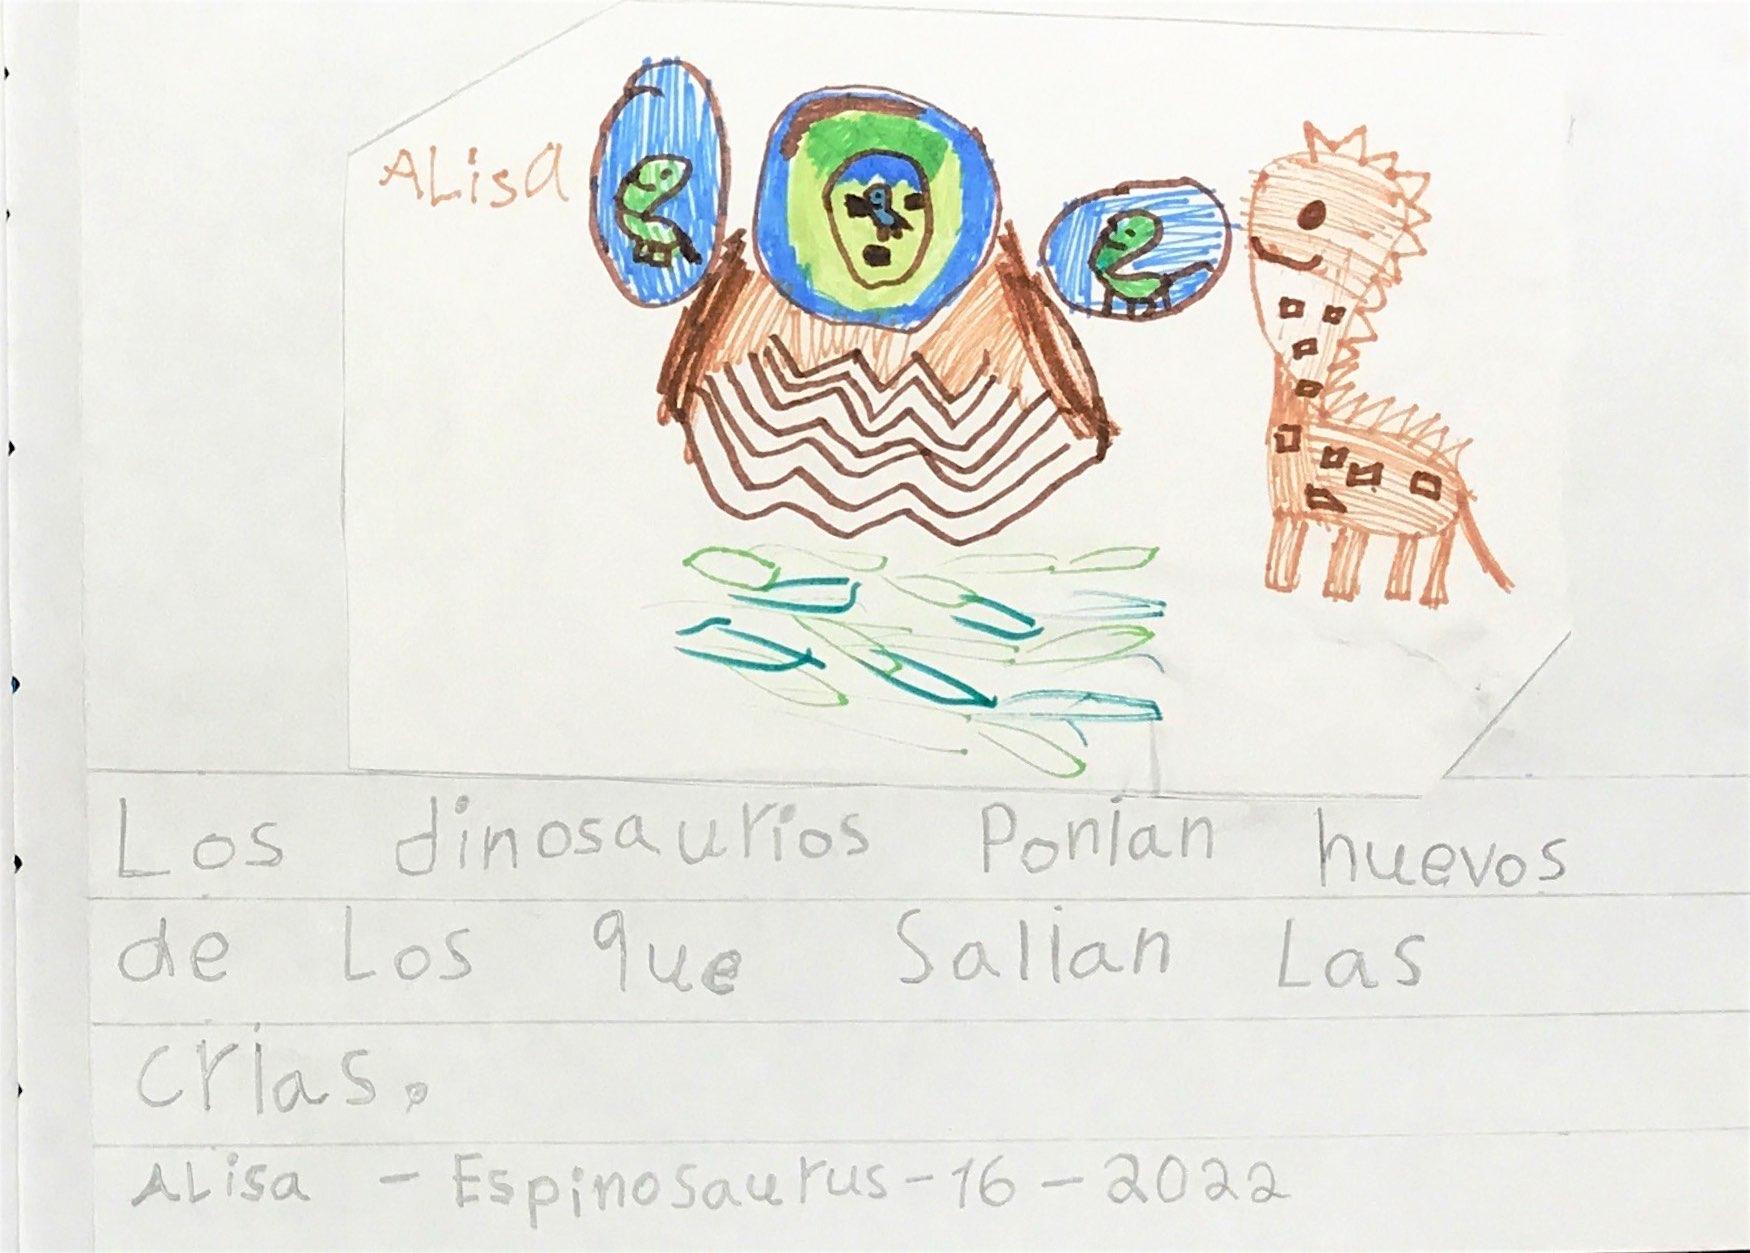 ALisa
Los dinosaurios Ponían huevos
de Los que Salían Las
crías.
ALisa - Espinosaurus-16-2022